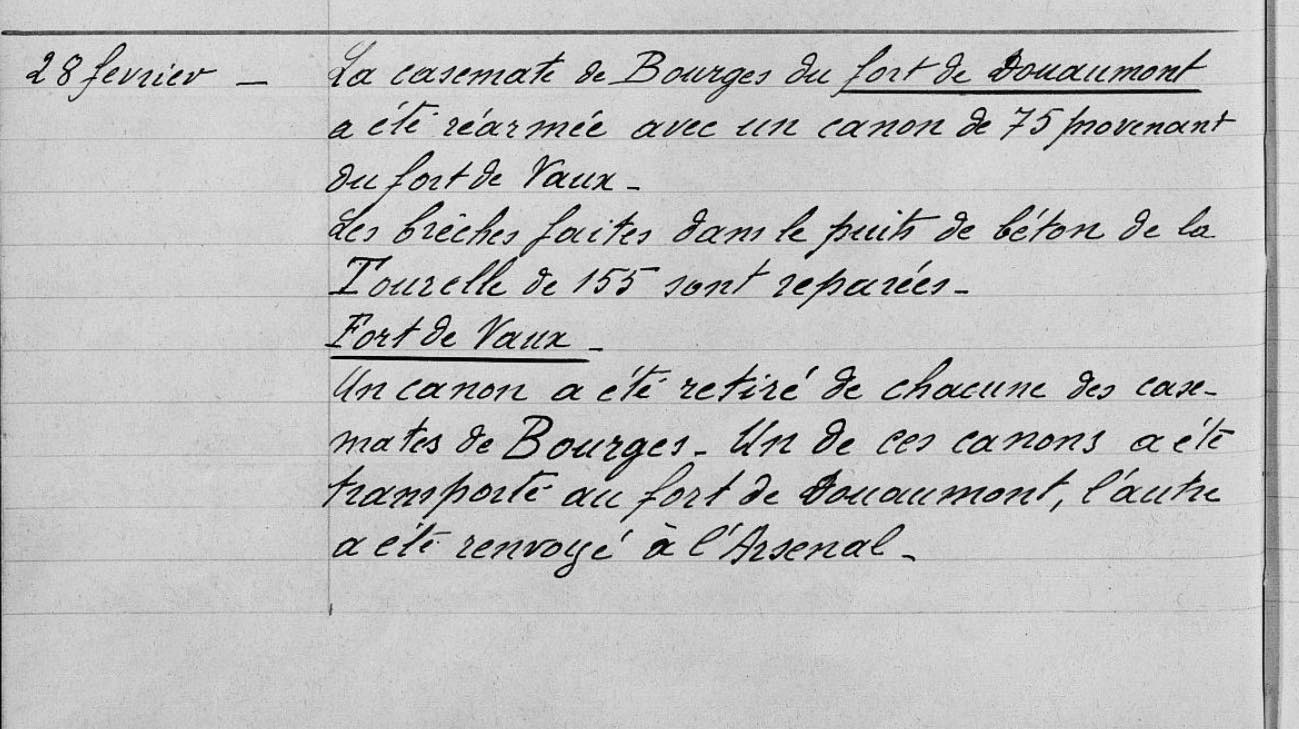 28 fevrier — La casemate de Bourges du fort de Douaumont
a été réarmée avec un canon de 75 provenant
du fort de Vaux -
Les brèches faites dans le puits de béton de la
Tourelle de 155 sont reparées -
Fort de Vaux -
Un canon a été retiré de chacune des case-
mates de Bourges - Un de ces canons a été
transporté au fort de Douaumont, l'autre
a été renvoyé à l'Arsenal -